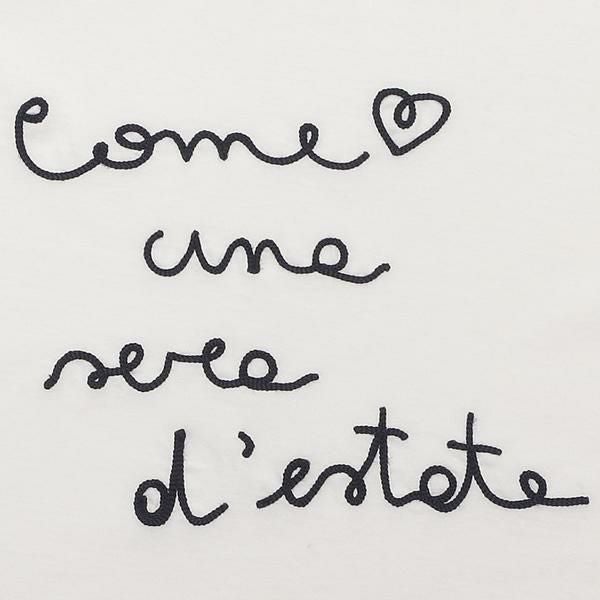 Come
una
sera
d'estate